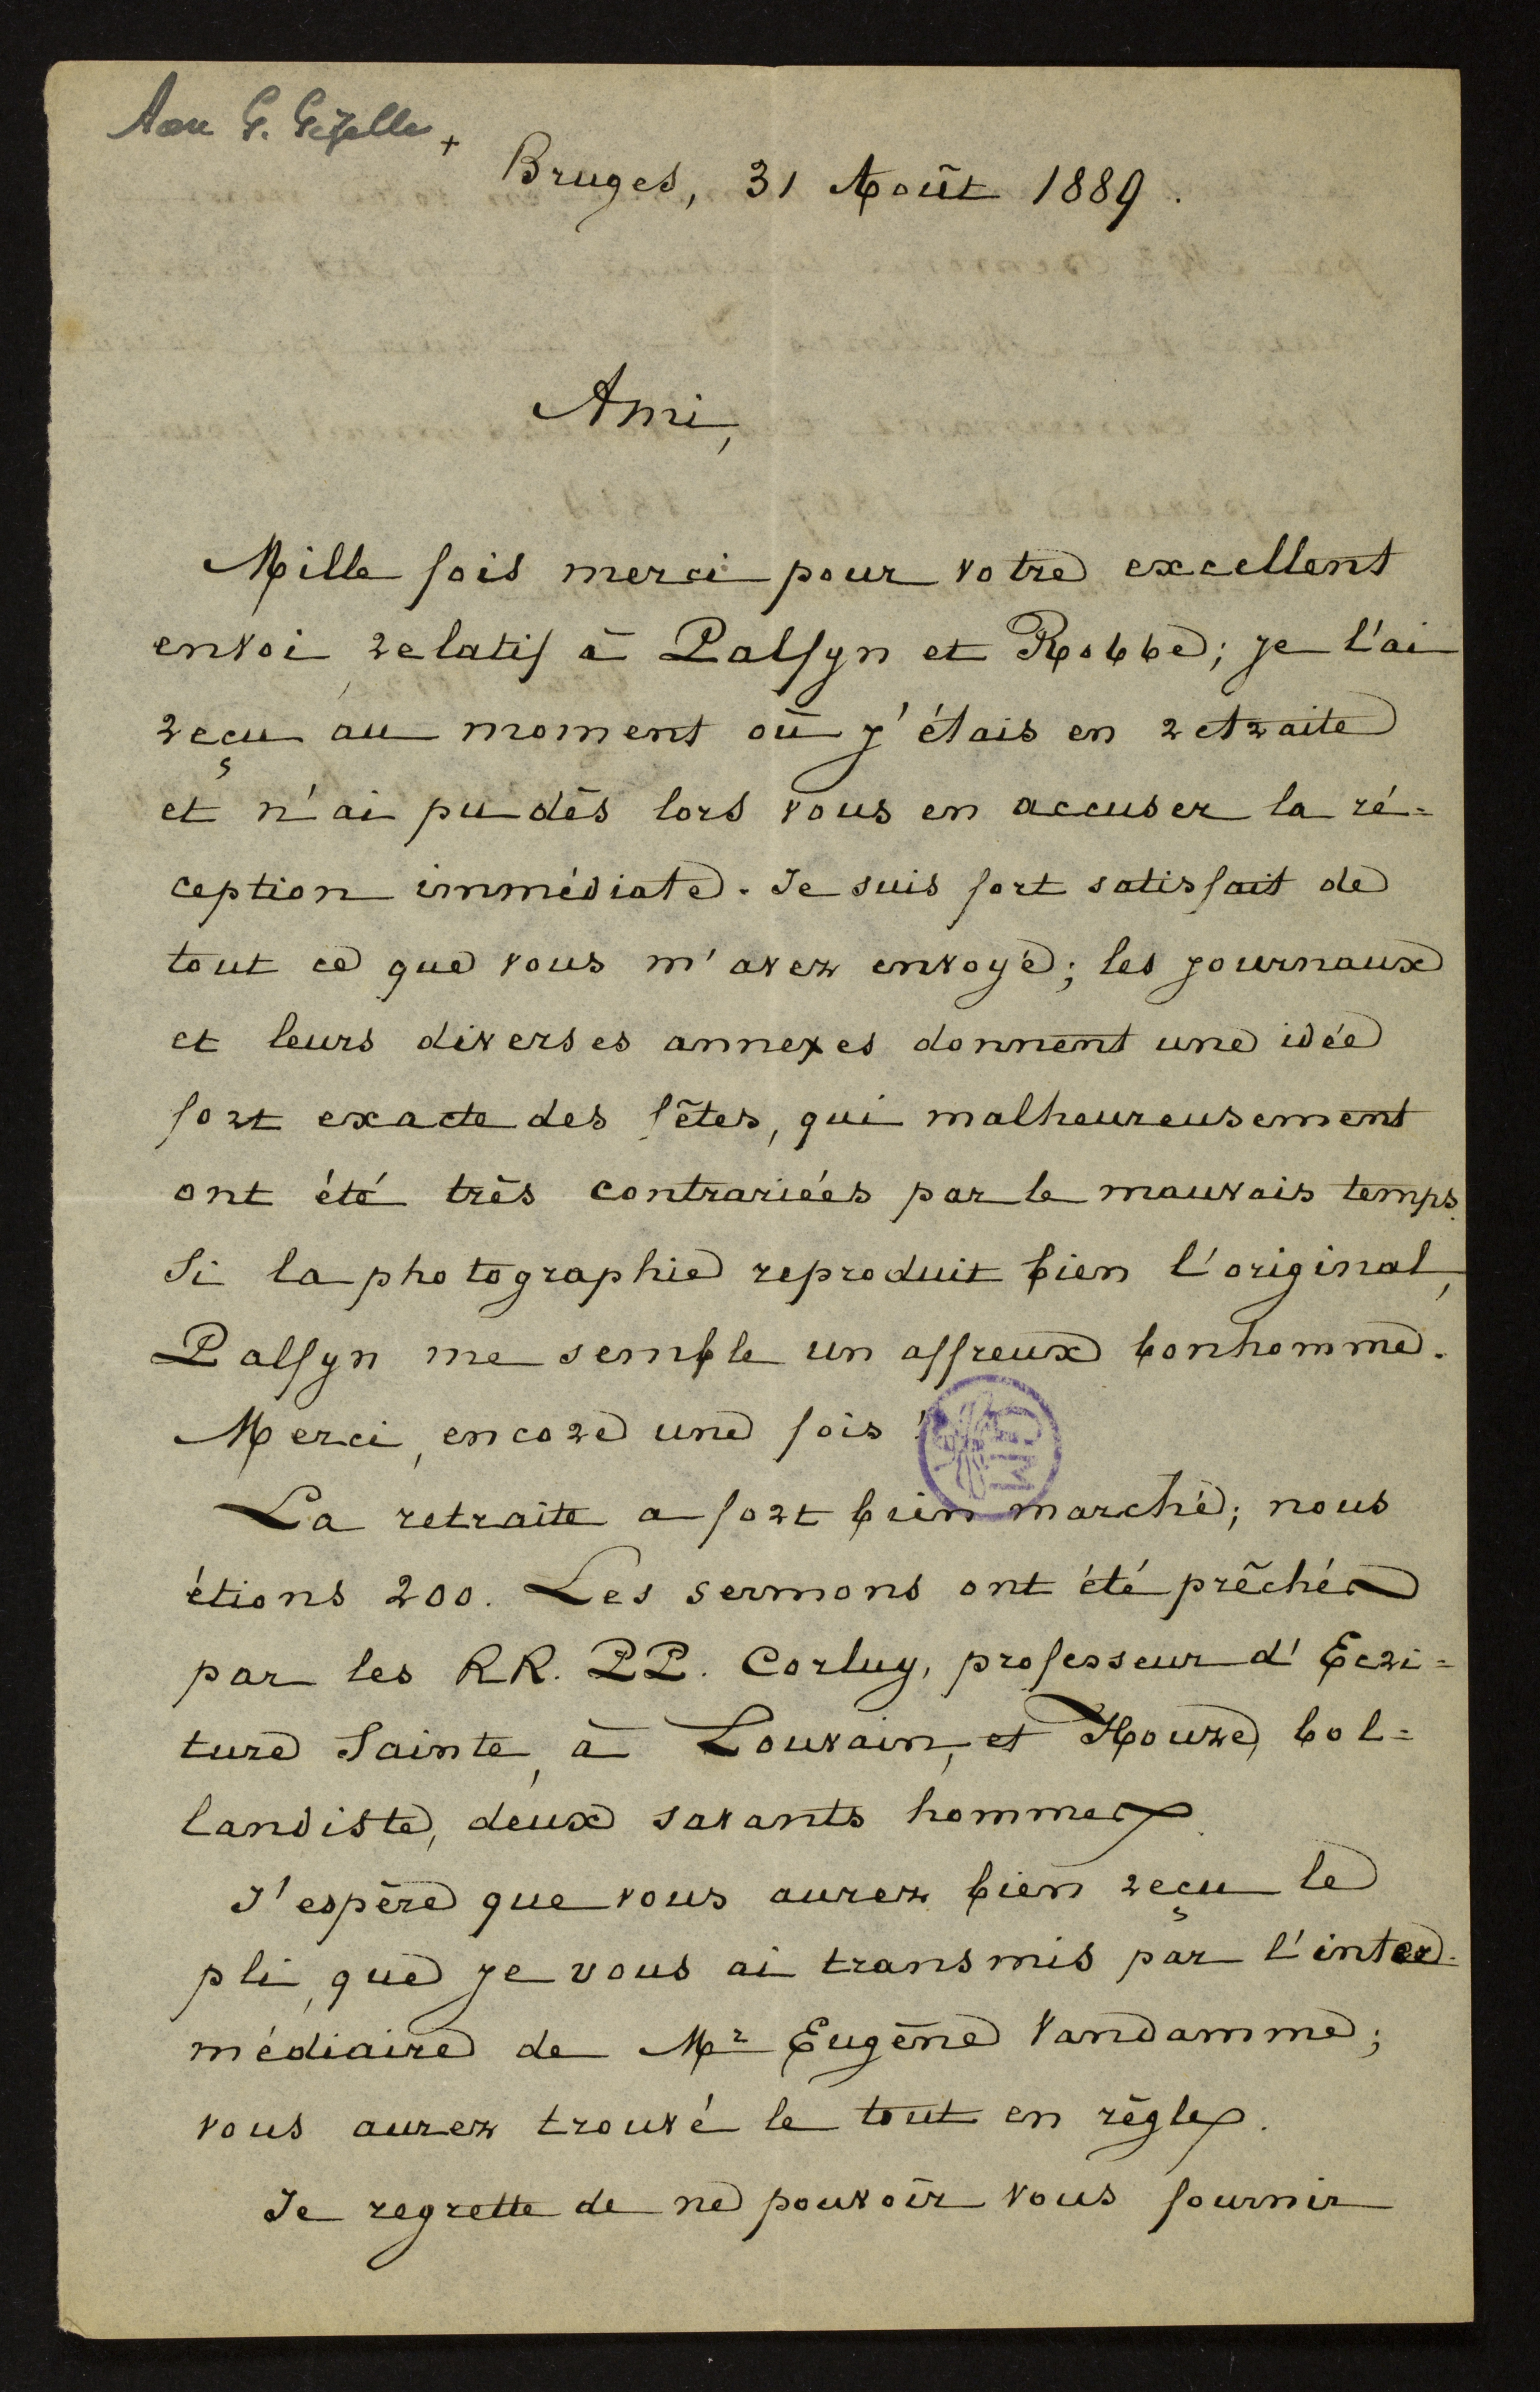 Aan G. Gezelle +
Bruges, 31 Août 1889.
Ami,
Mille fois merci pour votre excellent
envoi relatif à Palfyn et Robbe; je l'ai
reçu au moment où j'étais en retraite
et n'ai pu dès lors vous en accuser la ré=
ception immédiate. Je suis fort satisfait de
tout ce que vous m'avez envoyé; les journaux
et leurs diverses annexes donnent une idée
fort exacte des fêtes, qui malheureusement
ont été très contrariées par le mauvais temps.
Si la photographie reproduit bien l'original,
Palfyn me semble un affreux bonhomme.
Merci, encore une fois!
La retraite a fort bien marché; nous
étions 200. Les sermons ont été prêchés
par les RR. PP. Corluy, professeur d'Ecri=
ture Sainte, à Louvain, et Houze, bol=
landiste, deux savants hommes.
J'espère que vous aurez bien reçu le
pli, que je vous ai transmis par l'inter=
médiaire de Mr Eugène Vandamme;
vous aurez trouvé le tout en règle.
Je regrette de ne pouvoir vous fournir